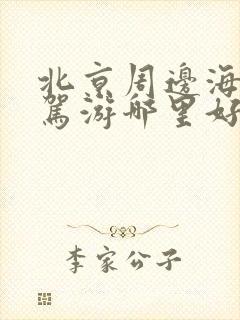 北京周邊海
駕游哪里好
李家公子